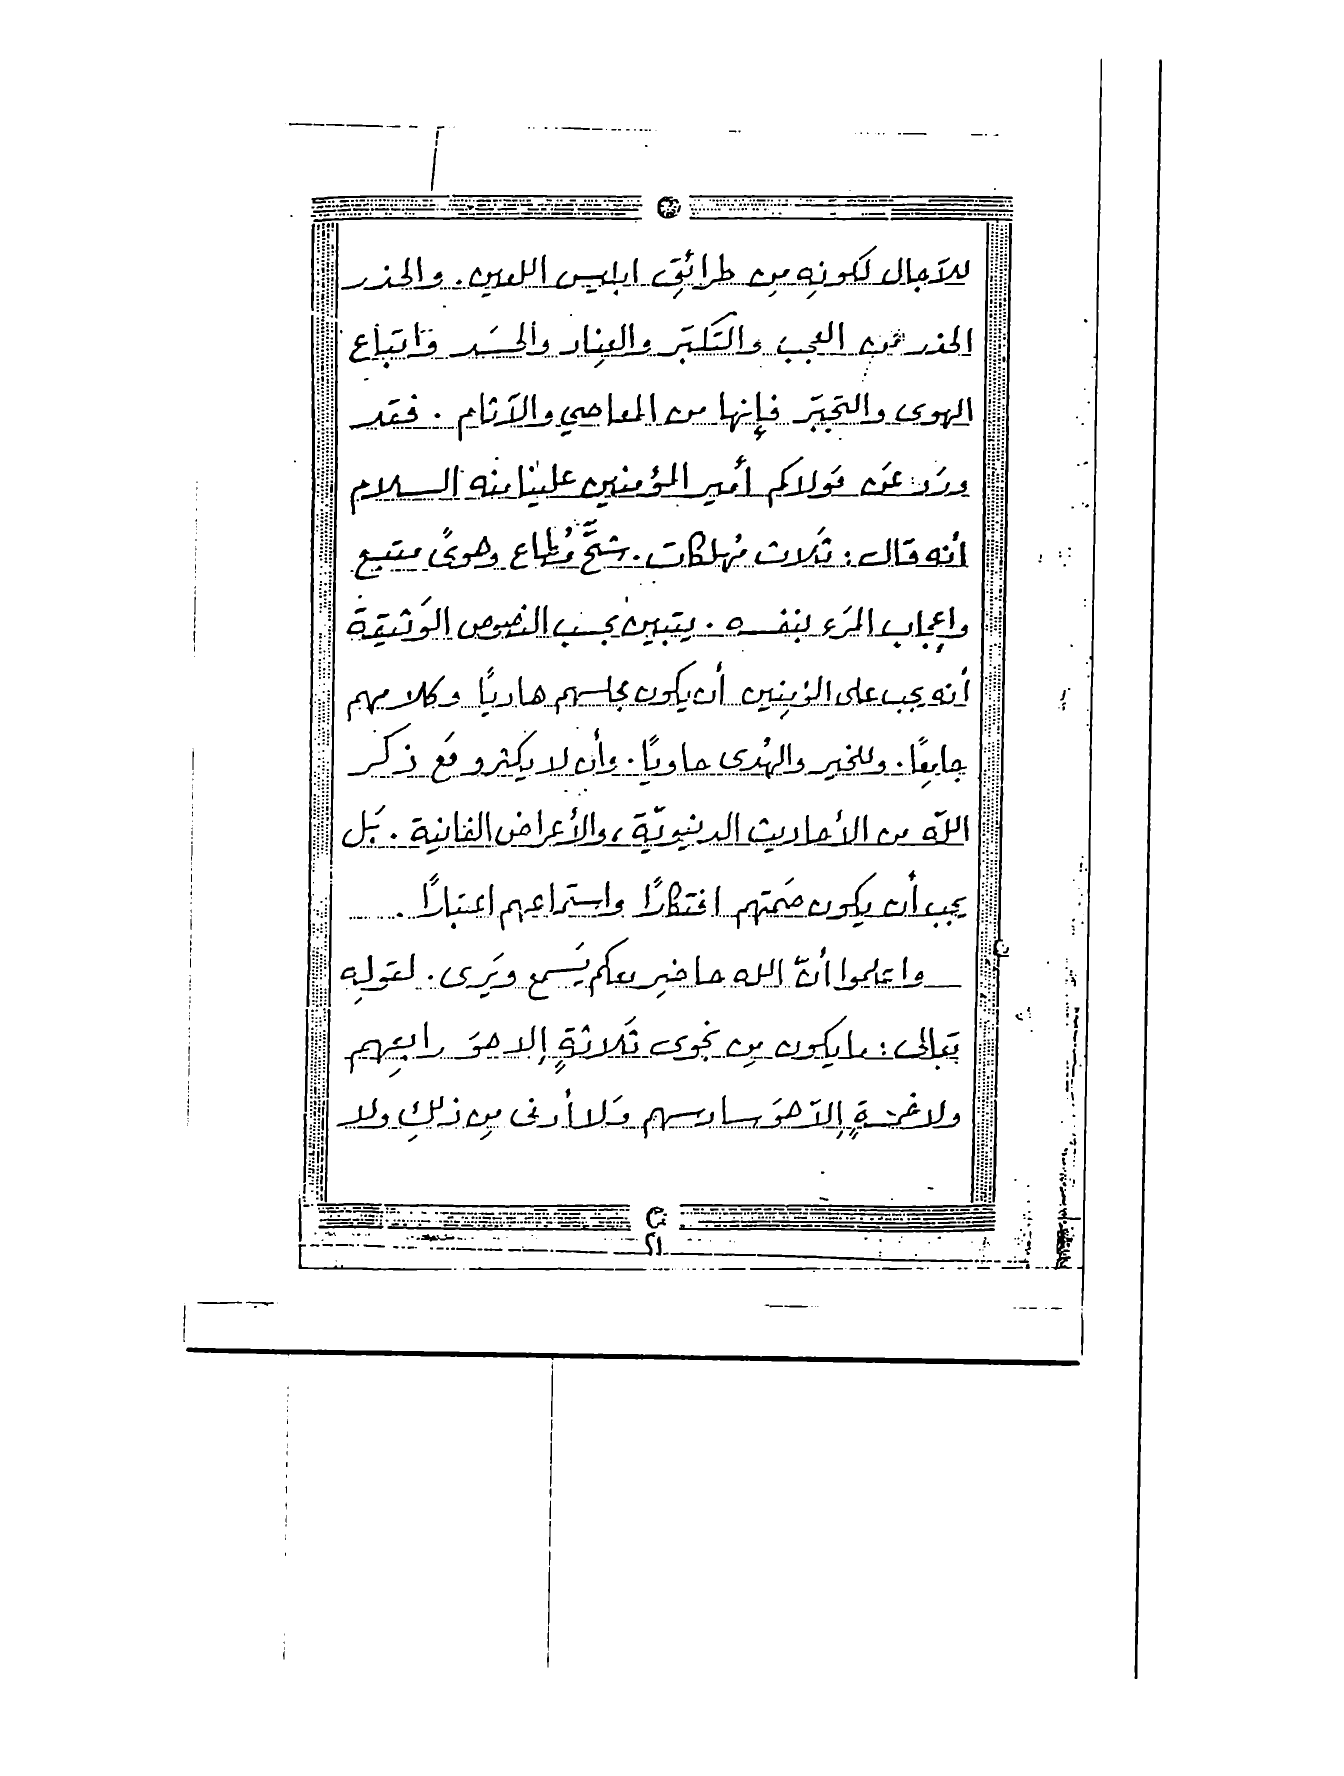 للآجال لكونِه مِن طرائِق ابليس اللعين. والحذر
الحذر من العجب والتكبّر والعِناد والحسَد واتباع
الهوى والتجبّر فإنها من المعاصي والآثام. فقد
ورَد عَن مَولاكم أمير المؤمنين علينا منه السلام
أنه قال: ثَلاث مُهلكات. شحٌّ مُطاع وهوىً متبع
وإعجاب المَرَء بنفسه. يتبين بحسب النصوص الوَثيقة
أنه يجب على المؤمِنين أن يكون مجلسهم هاديًا وكلامهم
جامِعًا. وللخير والهُدى حاويًا. وأن لا يكثرو مَع ذكر
اللّه من الأحاديث الدنيويّة، والأعراض الفانية. بَل
يجب أن يكون صَمتهم افتكارًا واستماعهم اعتبارًا.
واعلموا أنّ الله حاضِر معكم يَسمع ويَرى. لقولِه
تعالى: ما يكون مِن نجوى ثَلاثةٍ إلا هوَ رابعِهم
ولا خمسةٍ إلاّ هوَ سادسهم وَلا أدنى مِن ذلِكِ ولا
٢١